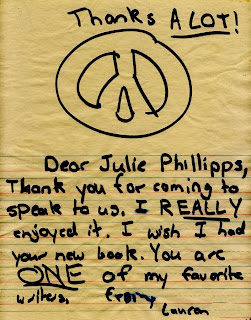 Thanks A LOT!
Dear Julie Phillipps,
Thank you for coming to
speak to us. I REALLY
enjoyed it. I wish I had
your new book. You are
ONE of my favorite
writers. From,
Lauren